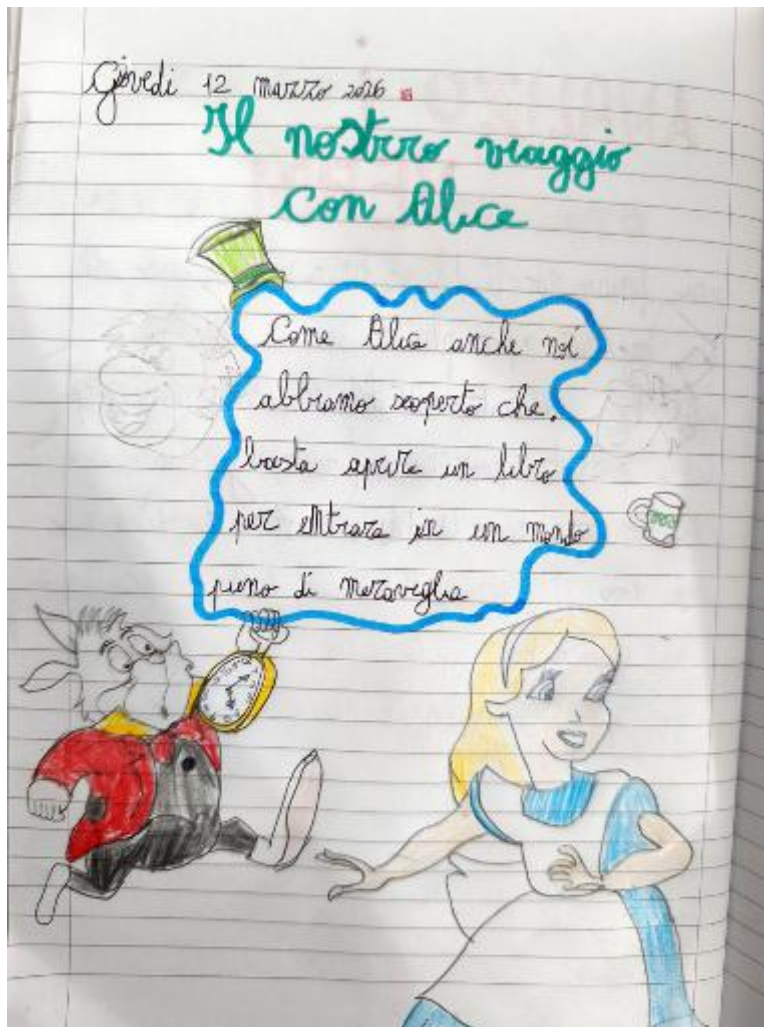 Giovedi 12 marzo 2026
Il nostro viaggio
con Alice
Come Alice anche noi
abbiamo scoperto che,
basta aprire un libro
per entrare in un mondo
pieno di meraviglia